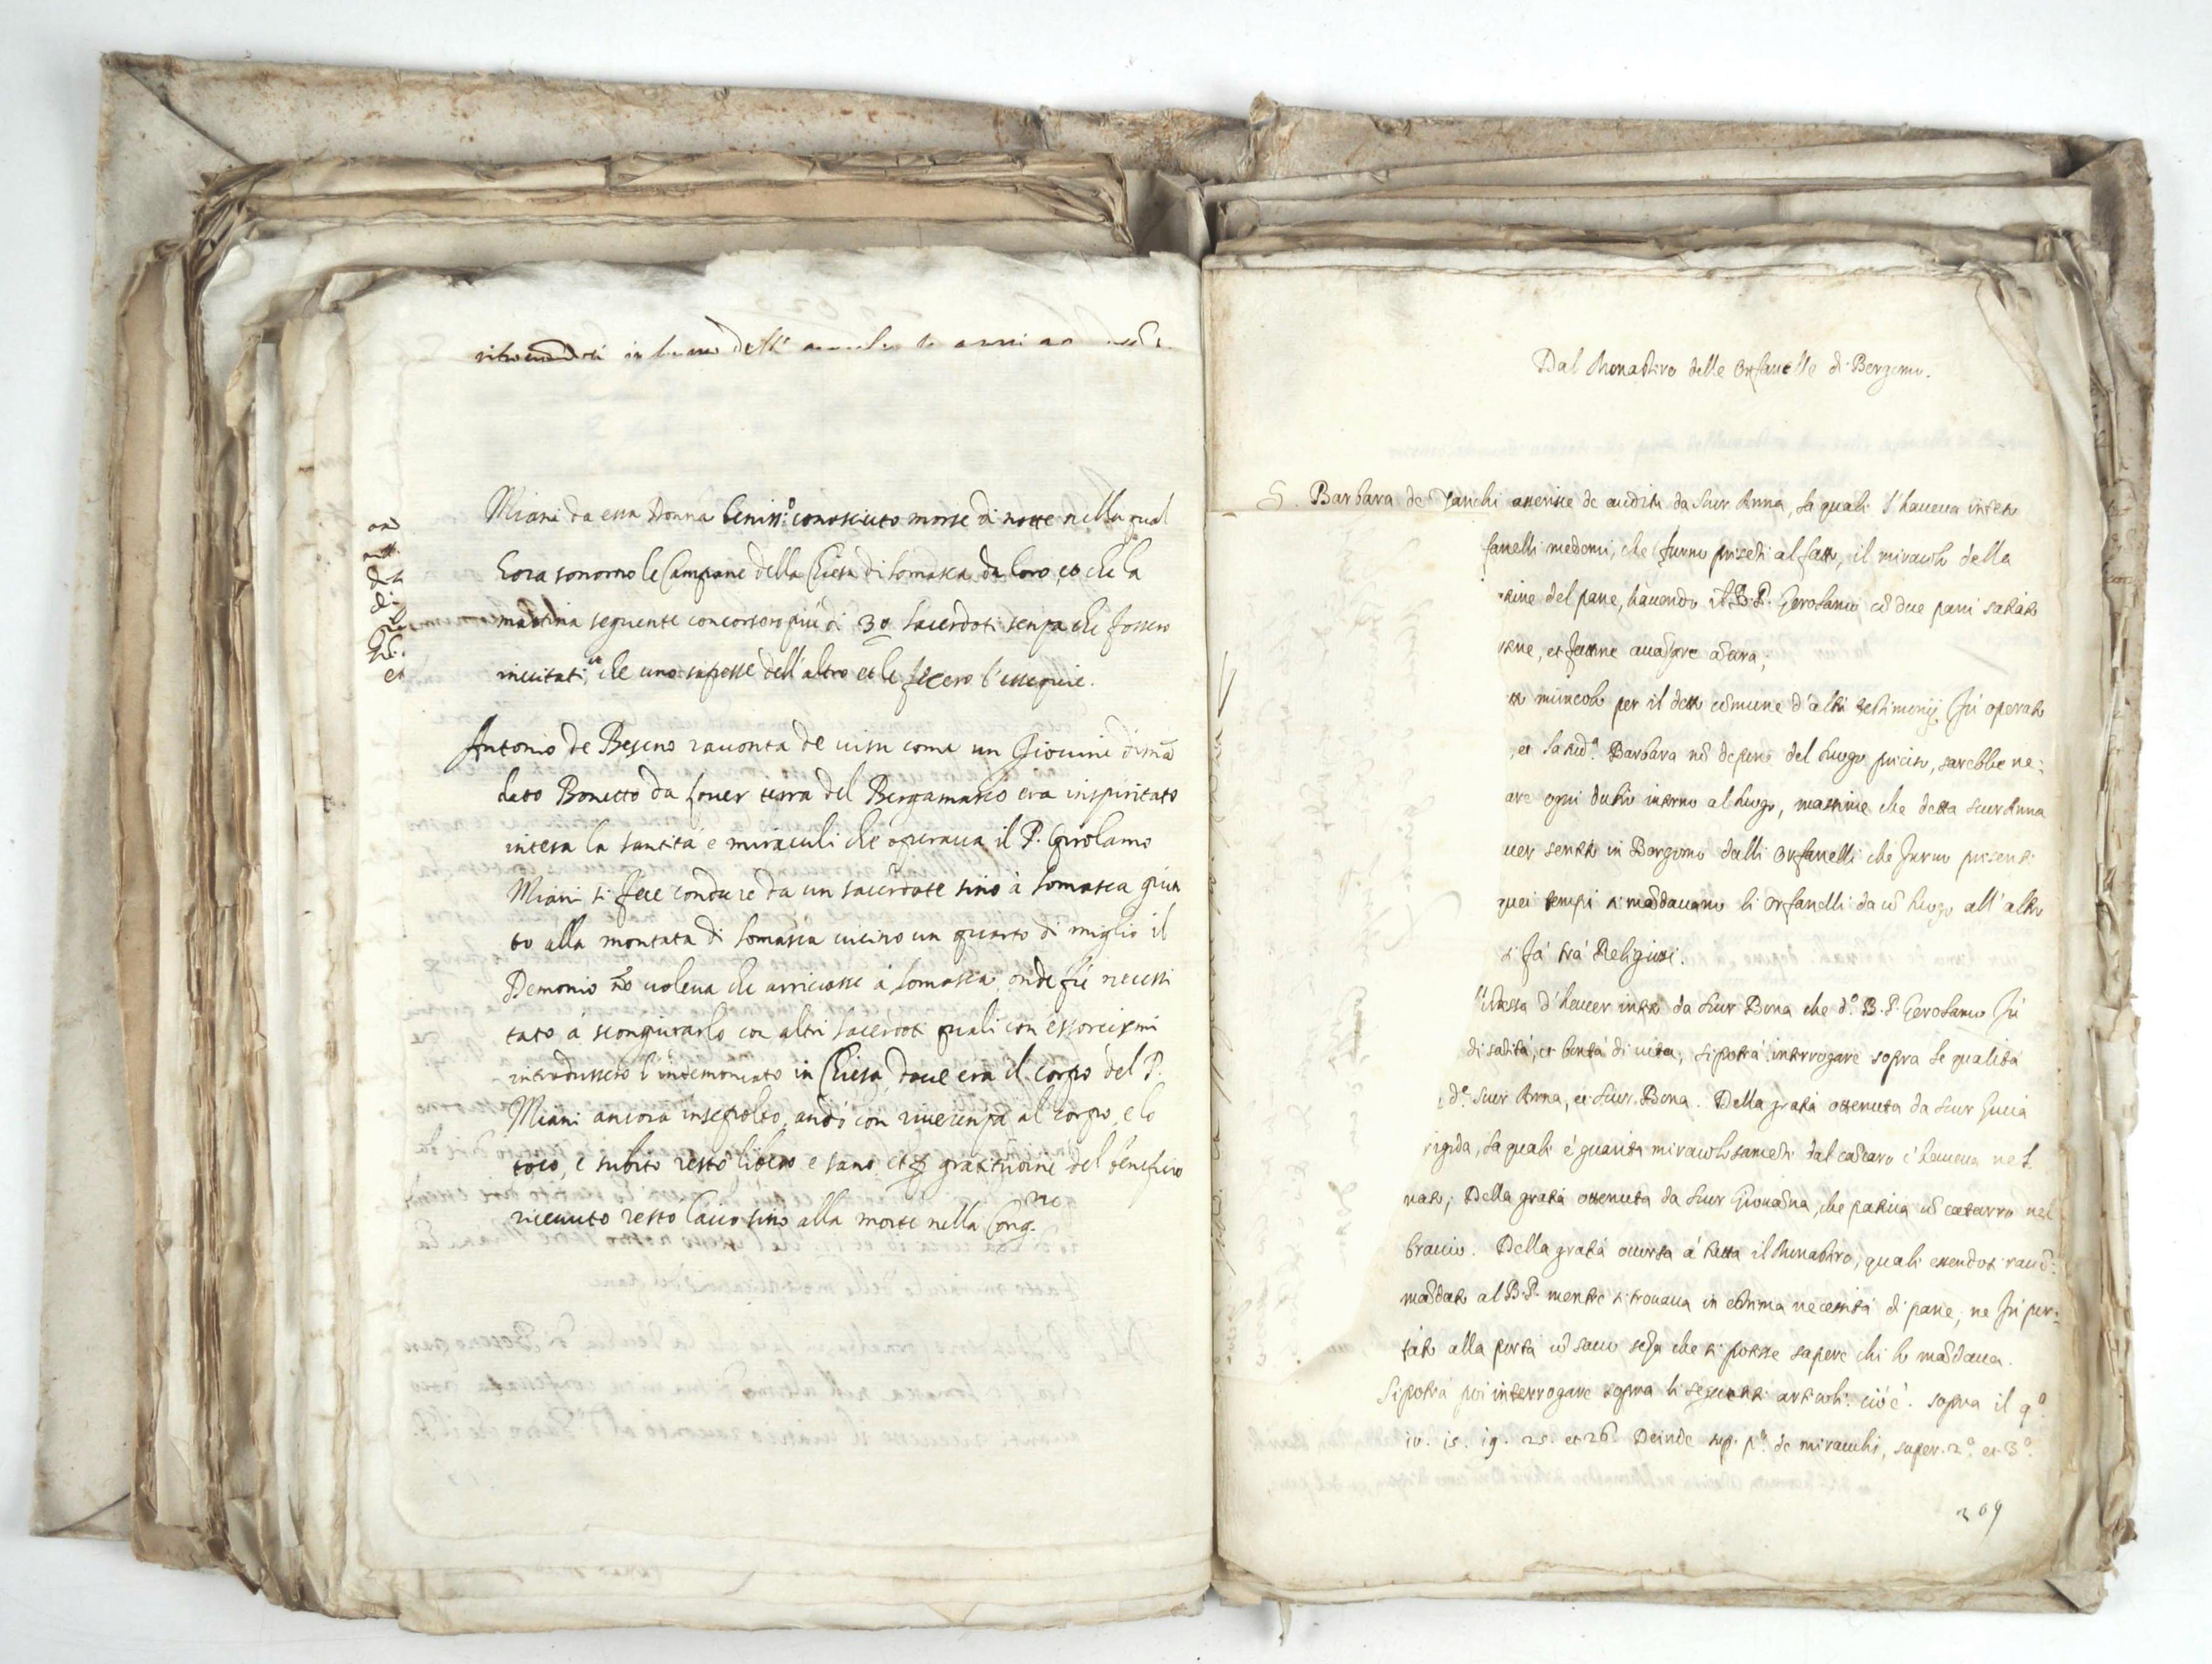 Miani da essa Donna beniss:º conosciuto morse di notte nella qual
hora sonorno le Campane della Chiesa di Somasca da loro, et che la
mattina seguente concorsero più di 30 Sacerdoti senza che fossero
invitati, che uno sapesse dell'altro et le fecero l'essequie.
Antonio de Beseno racconta de visu come un Giovine diman
dato Bonetto da Lover terra del Bergamasco era inspiritato
intesa la santità e miraculi che operava il P. Girolamo
Miani si fece condure da un sacerdote sino à Somasca giun
to alla montata di Somasca vicino un quarto di miglio il
Demonio nõ voleva che arrivasse à Somasca, onde fù necessi
tato à scongiurarlo con altri Sacerdoti quali con essorcismi
introdussero l'indemoniato in Chiesa, dove era il corpo del P.
Miani ancora insepolto, andò con riverenza al corpo, e lo
tocò, e subito restò libero e sano, et p gratitudine del beneficio
ricevuto restò laico sino alla morte nella Cong.ne
Dal Monastero delle Orfanelle di Bergomo.
S. Barbara de Zanchi asserisce de audito da Suor Anna, la quale l'haveva inteso
fanelli medemi, che furno presenti al fatto, il miracolo della
tione del pane, havendo il B.P. Gerolamo cõ due pani satiato
sone, et fattone avanzare ancora,
to miracolo per il detto comune d'altri testimonij fù operato
, et la sud.ª Barbara nõ depone del luogo preciso, sarebbe ne:
are ogni dubio intorno al luogo, massime che detta Suor Anna
ver sentito in Bergomo dalli Orfanelli che furno presenti
quei tempi si mãdavano li Orfanelli da uñ luogo all'altro
si fà trà Religiosi.
l'istessa d'haver inteso da Suor Bona che d.º B.P. Gerolamo fù
di sãtità, et bontà di vita, si potrà interrogare sopra le qualità
d.ª Suor Anna, et Suor Bona. Della gratia ottenuta da Suor Lucia
rigida, la quale è guarita miracolosamente dal cãcaro c'haveva nel
nato; Della gratia ottenuta da Suor Giovãna, che pativa uñ catarro nel
braccio. Della gratia occorsa à tutto il Monastero, quale essendosi racõ:
mãdato al B.P. mentre si trovava in estrema necessità di pane, ne fù por:
tato alla porta uñ saco sẽza che si potesse sapere chi lo mãdava.
Si potrà poi interrogare sopra li seguenti articoli: cioè: sopra il 9º
10. 15. 19. 25. et 26. Deinde sup. pº de miraculis, super 2º et 3º
209